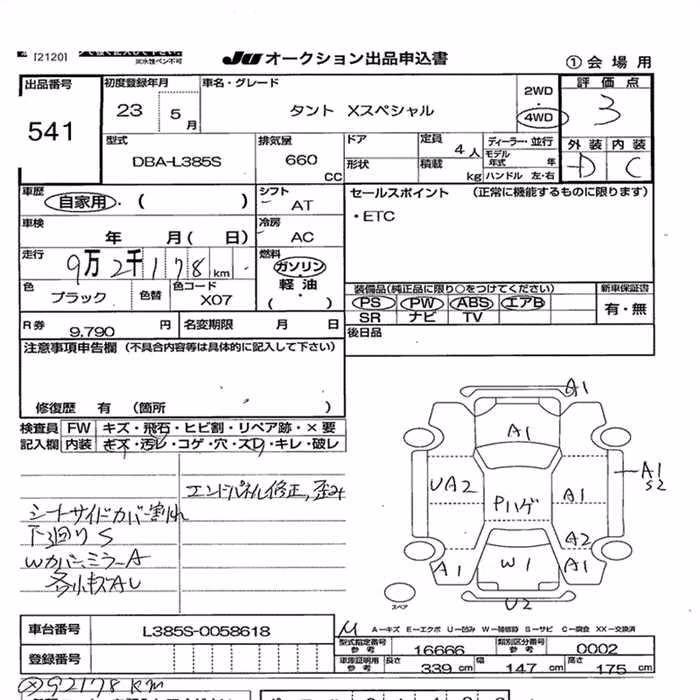 [2120]
※水性ペン不可
JU オークション出品申込書
①会場用
出品番号
541
初度登録年月
23 5月
車名・グレード
タント Xスペシャル
2WD
・
4WD
評価点
3
外装 内装
D C
型式
DBA-L385S
排気量
660 CC
ドア
形状
定員 4人
積載 kg
ディーラー・並行
モデル年式 年
ハンドル 左・右
車歴
自家用 ・( )
シフト
AT
セールスポイント (正常に機能するものに限ります)
・ETC
車検
年 月( 日)
冷房
AC
走行
9万2千178km
燃料
ガソリン
軽油
( ・ )
色
ブラック
色替
色コード
X07
装備品(純正品に限り○をつけてください)
PS PW ABS エアB
SR ナビ TV
新車保証書
有・無
R券 9,790 円
名変期限 月 日
後日品
注意事項申告欄 (不具合内容等は具体的に記入して下さい)
修復歴 有 (箇所 )
検査員記入欄
FW キズ・飛石・ヒビ割・リペア跡・×要
内装 キズ・汚レ・コゲ・穴・スレ・キレ・破レ
エンドパネル修正,歪み
シートサイドカバー割れ
下回りS
Wカバー,ミラーA
各小キズAU
A1
A1
UA2
Pハゲ
A1
A1
S2
A2
A1
W1
A1
U2
スペア
A−キズ E−エクボ U−凹ミ W−補修跡 S−サビ C−腐食 XX−交換済
車台番号 L385S-0058618
型式指定番号 参考 16666
類別区分番号 参考 0002
登録番号
車庫証明用 参考 長さ 339 cm 幅 147 cm 高さ 175 cm
92178KM